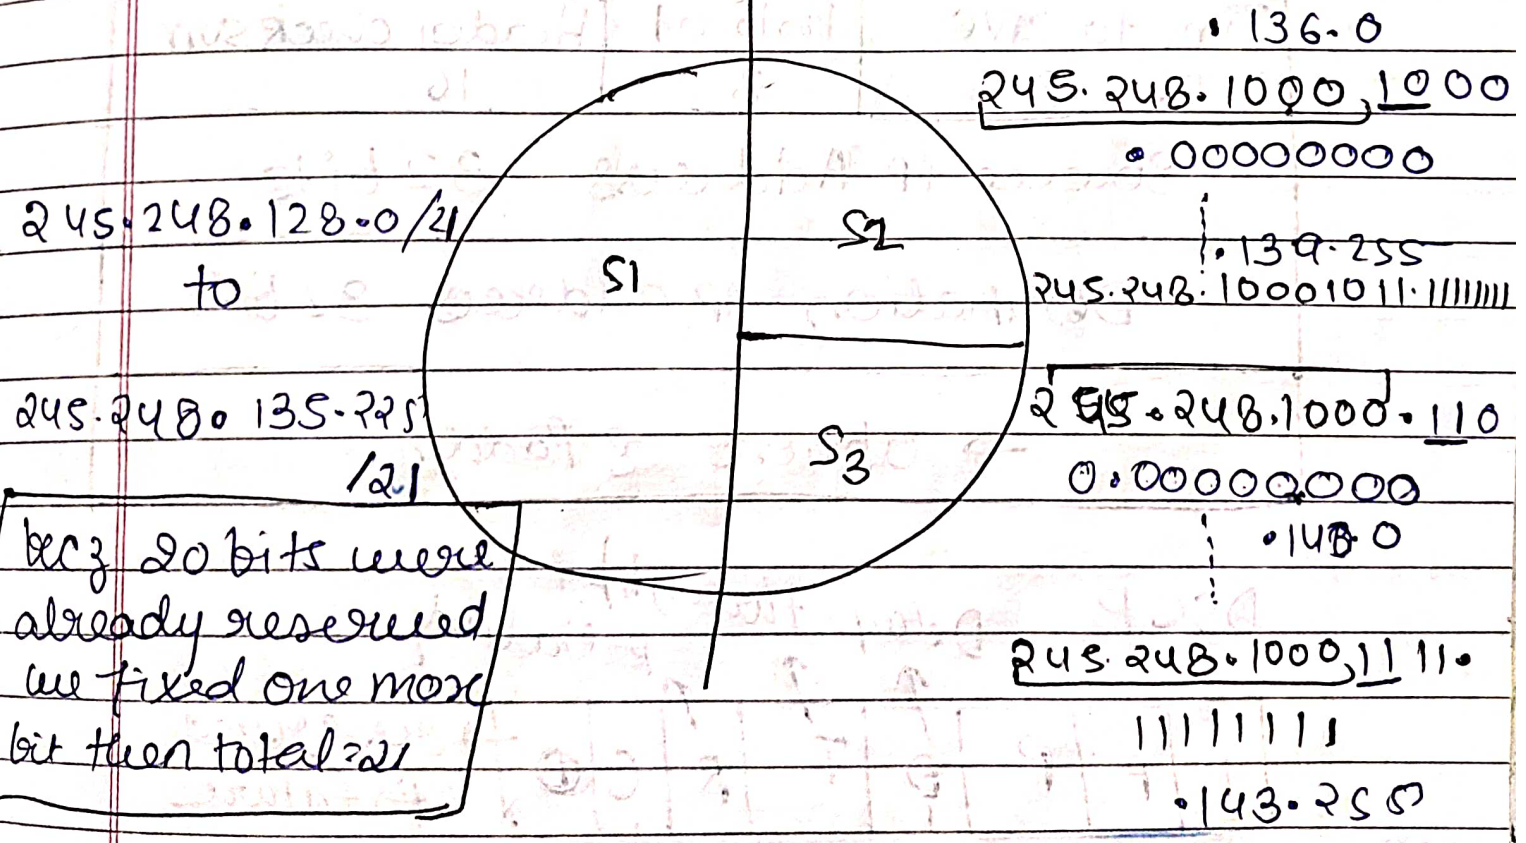 245.248.128.0/21
to
245.248.135.225
/21
becz 20 bits were
already reserved
we fixed one more
bit then total=21
S1
S2
S3
.136.0
245.248.1000,1000
.00000000
.139.255
245.248.10001011.11111111
245.248.1000.110
0.00000000
.140.0
245.248.1000,1111.
11111111
.143.255